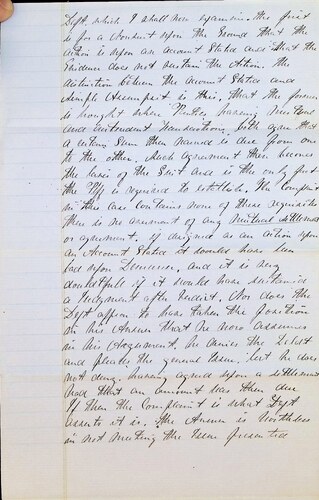 Deft. which I shall now examine. The first
is for a Nonsuit upon the Ground that the
action is upon an account Stated and that the
Evidence does not sustain the Action. The
distinction between the account Stated and
simple Assumpsit is this, that the former
is brought where Parties having
and Transactions, both agree that
a certain Sum then named is due from one
to the other. Such agreement then becomes
the basis of the Suit and is the only fact
the Plff is required to establish. The Complaint
in this case Contains none of these requisites
there is no averment of any mutual settlement
or agreement. If designed as an action upon
an Account Stated it would have been
bad upon Demurrer. and it is very
doubtful if it would have sustained
a Judgment after Verdict. Nor does the
Deft appear to have taken the position
in his Answer that he now assumes
in his Argument. he denies the Debt
and pleads the general Issue. but he does
not deny having agreed upon a settlement
had that an amount was then due
If then the Complaint is what Deft
asserts it is. The Answer is Worthless
in not meeting the Issue presented